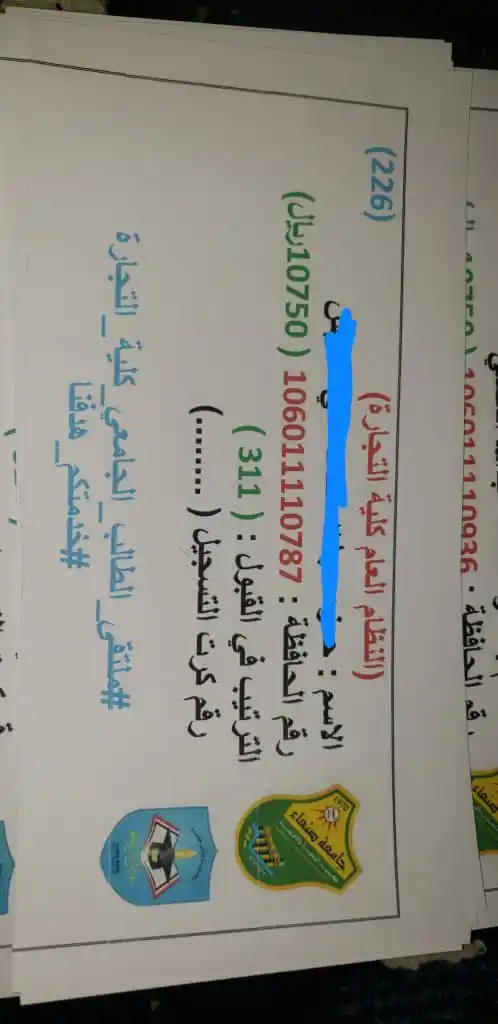 (226)
(النظام العام كلية التجارة)
الاسم :
رقم الحافظة : 106011110787 ( 10750ريال)
الترتيب في القبول : ( 311 )
رقم كرت التسجيل (........ )
#ملتقى_الطالب_الجامعي_كلية_التجارة
#خدمتكم_هدفنا
جامعة صنعاء
1970
رقم الحافظة : 106011110936